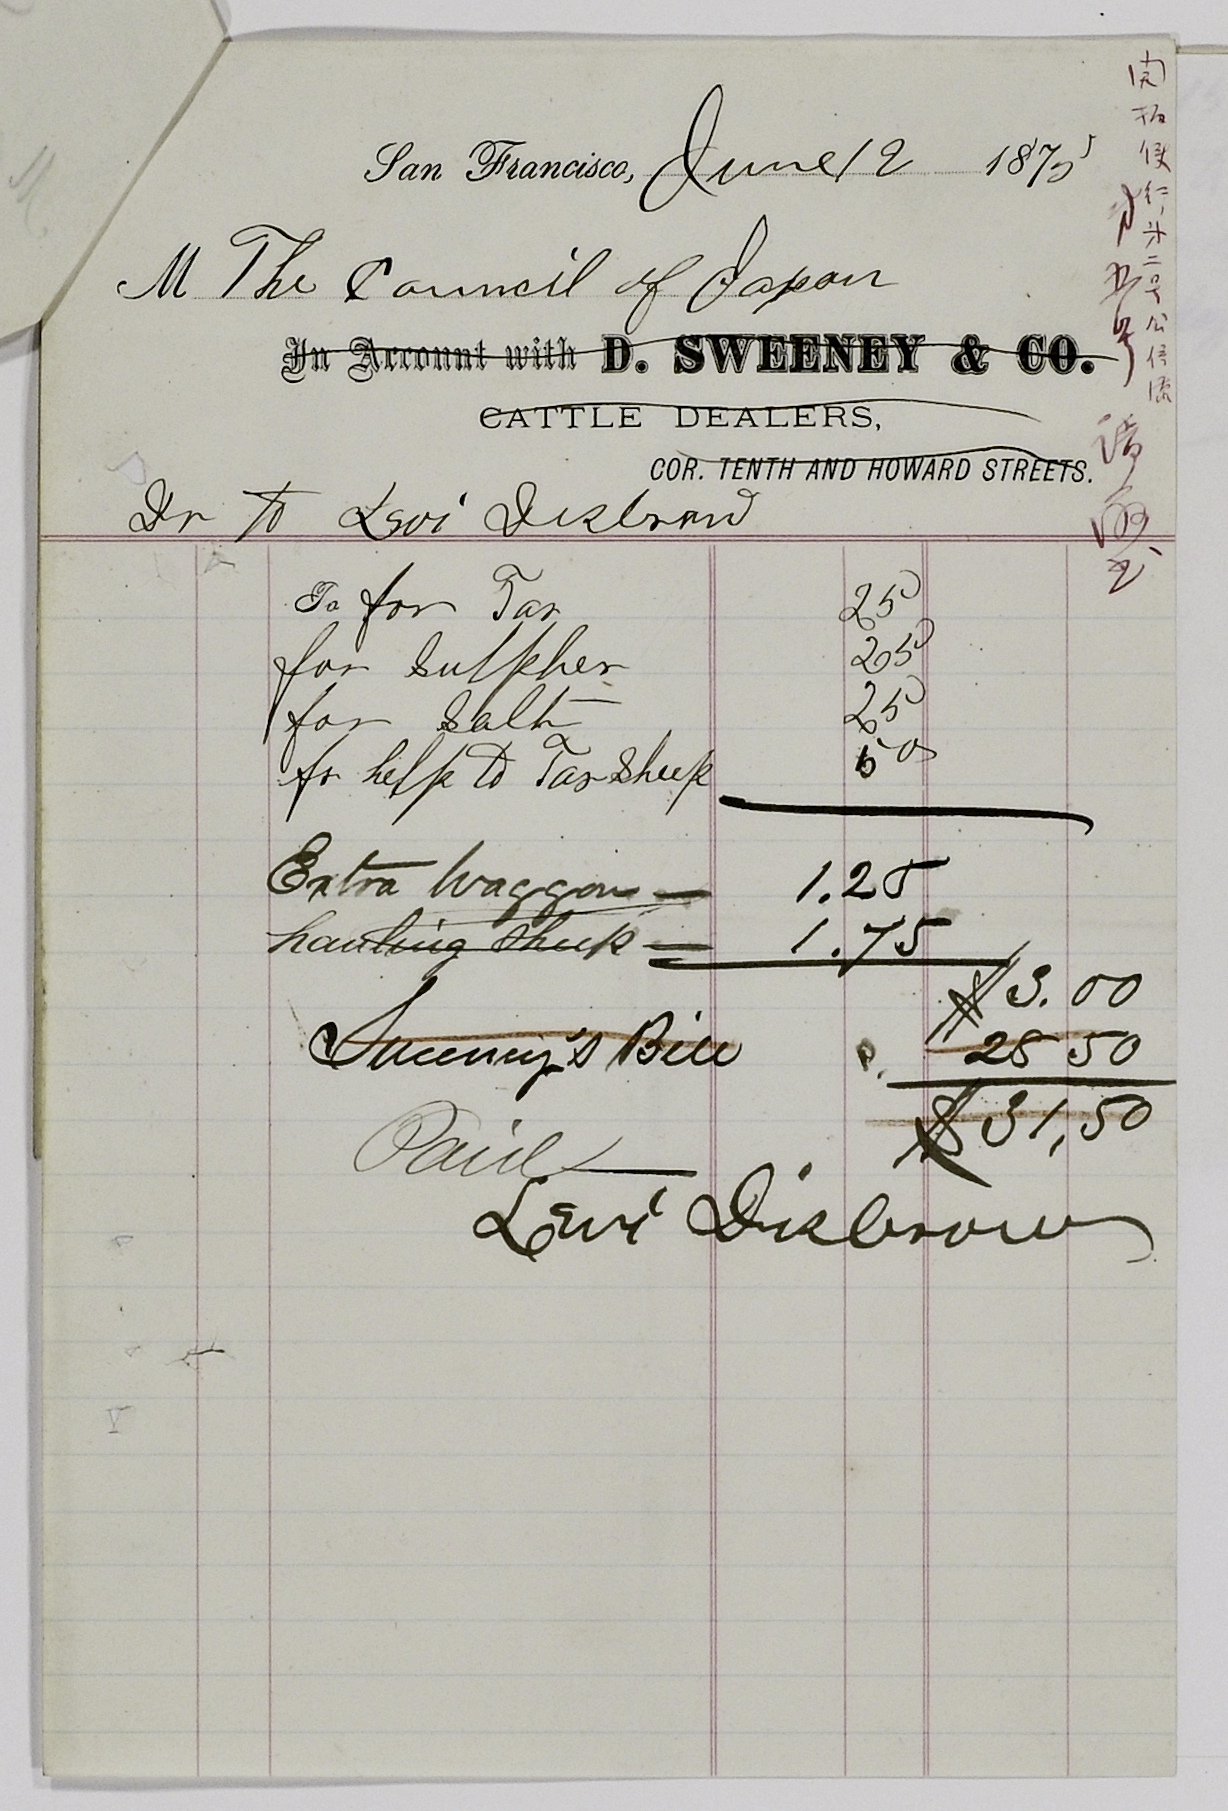 San Francisco, June 12 1875
M The Council of Japan
In Account with D. SWEENEY & CO.
CATTLE DEALERS,
COR. TENTH AND HOWARD STREETS.
Dr to Levi Disbrow
To for Tar 25
for sulpher 25
for salt 25
for help to Tar sheep 50
Extra Waggon 1.25
hauling sheep 1.75
$3.00
Sweeney's Bill 28 50
$31,50
Paid
Levi Disbrow
開拓使
二号公信